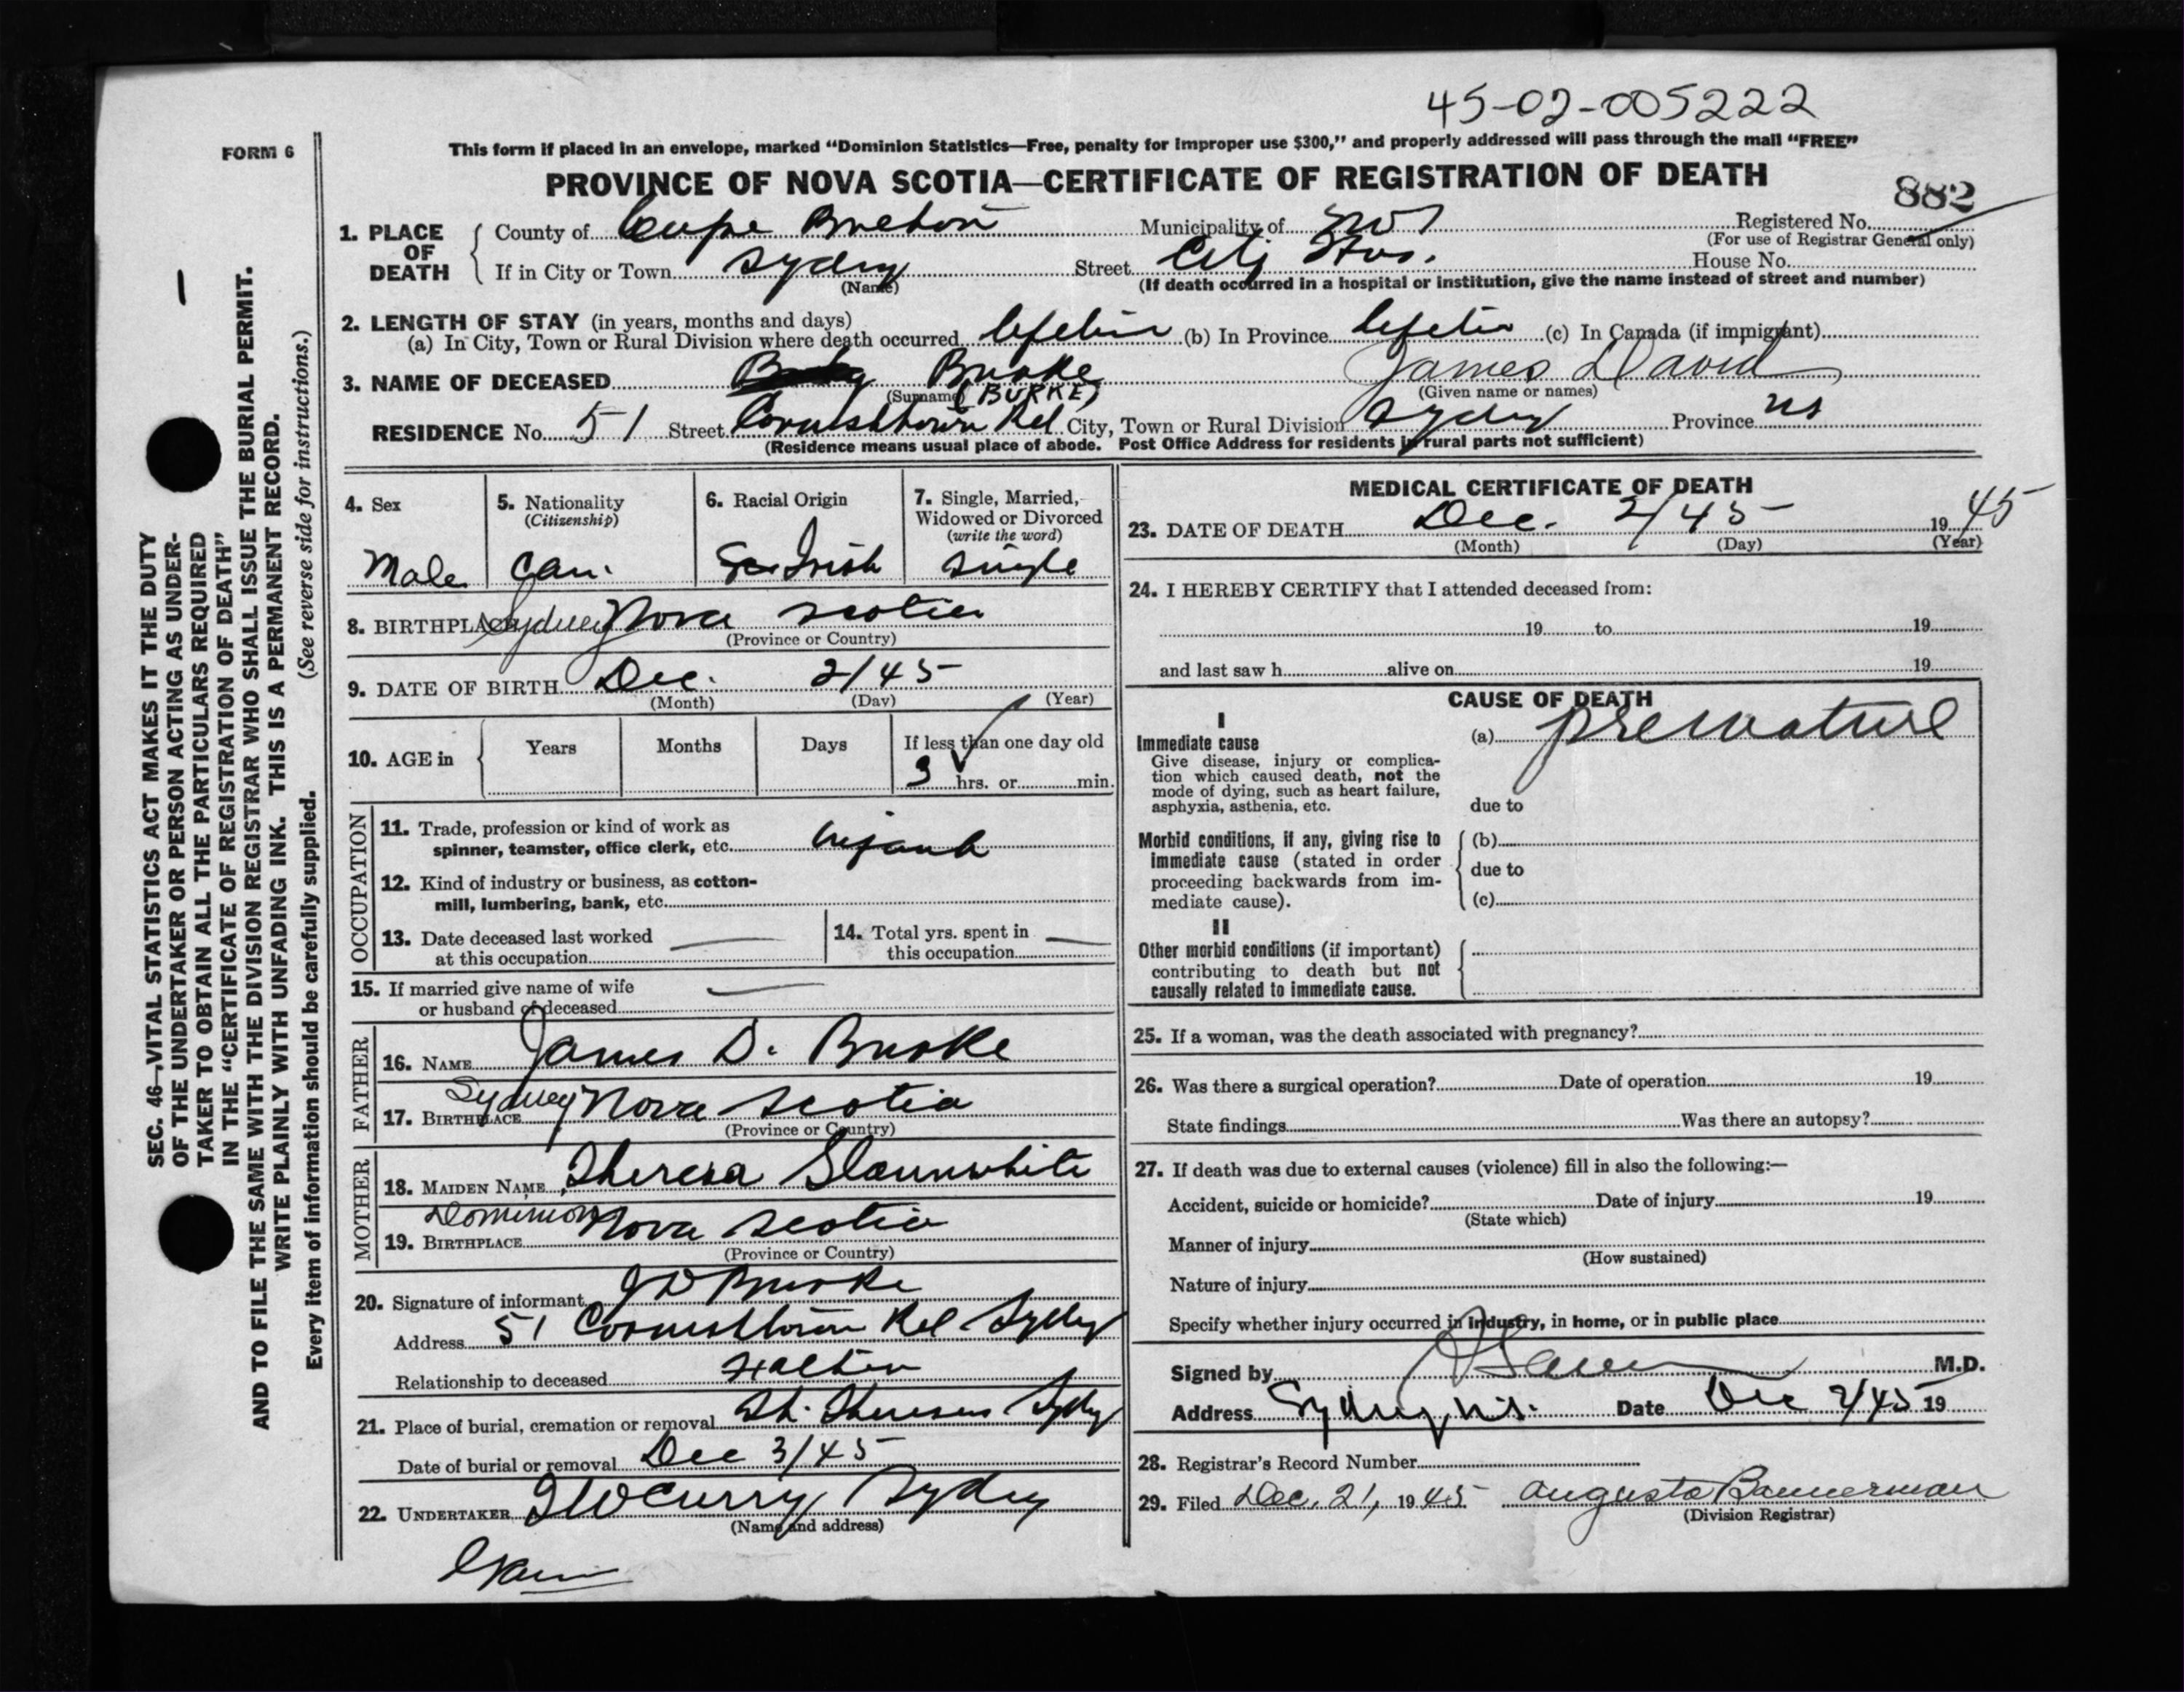 45-02-005222
FORM 6
This form if placed in an envelope, marked “Dominion Statistics—Free, penalty for improper use $300,” and properly addressed will pass through the mail “FREE”
PROVINCE OF NOVA SCOTIA—CERTIFICATE OF REGISTRATION OF DEATH
882
1. PLACE OF DEATH
County of Cape Breton Municipality of Registered No.
(For use of Registrar General only)
If in City or Town Sydney Street City Hos. House No.
(Name) (If death occurred in a hospital or institution, give the name instead of street and number)
2. LENGTH OF STAY (in years, months and days)
(a) In City, Town or Rural Division where death occurred lifetime (b) In Province lifetime (c) In Canada (if immigrant)
3. NAME OF DECEASED Burke James David
(Surname) (BURKE) (Given name or names)
RESIDENCE No. 51 Street Cornishtown Rd City, Town or Rural Division Sydney Province NS
(Residence means usual place of abode. Post Office Address for residents in rural parts not sufficient)
4. Sex
Male
5. Nationality
(Citizenship)
Can.
6. Racial Origin
Irish
7. Single, Married, Widowed or Divorced
(write the word)
single
8. BIRTHPLACE Sydney Nova Scotia
(Province or Country)
9. DATE OF BIRTH Dec. 2/45
(Month) (Day) (Year)
10. AGE in Years Months Days If less than one day old
3 hrs. or min.
OCCUPATION
11. Trade, profession or kind of work as
spinner, teamster, office clerk, etc. infant
12. Kind of industry or business, as cotton-
mill, lumbering, bank, etc.
13. Date deceased last worked
at this occupation
14. Total yrs. spent in
this occupation
15. If married give name of wife
or husband of deceased
FATHER
16. NAME James D. Burke
17. BIRTHPLACE Sydney Nova Scotia
(Province or Country)
MOTHER
18. MAIDEN NAME Theresa Slaunwhite
19. BIRTHPLACE Dominion Nova Scotia
(Province or Country)
20. Signature of informant J D Burke
Address 51 Cornishtown Rd Sydney
Relationship to deceased Father
21. Place of burial, cremation or removal St. Theresas Sydney
Date of burial or removal Dec 3/45
22. UNDERTAKER Curry Sydney
(Name and address)
MEDICAL CERTIFICATE OF DEATH
23. DATE OF DEATH Dec. 2/45 1945
(Month) (Day) (Year)
24. I HEREBY CERTIFY that I attended deceased from:
19 to 19
and last saw h alive on 19
CAUSE OF DEATH
I
Immediate cause
Give disease, injury or complica-
tion which caused death, not the
mode of dying, such as heart failure,
asphyxia, asthenia, etc.
(a) premature
due to
Morbid conditions, if any, giving rise to
immediate cause (stated in order
proceeding backwards from im-
mediate cause).
(b)
due to
(c)
II
Other morbid conditions (if important)
contributing to death but not
causally related to immediate cause.
25. If a woman, was the death associated with pregnancy?
26. Was there a surgical operation? Date of operation 19
State findings Was there an autopsy?
27. If death was due to external causes (violence) fill in also the following:—
Accident, suicide or homicide? Date of injury 19
(State which)
Manner of injury
(How sustained)
Nature of injury
Specify whether injury occurred in industry, in home, or in public place
Signed by M.D.
Address Sydney, N.S. Date Dec 2/45 19
28. Registrar's Record Number
29. Filed Dec. 21, 1945 Augusta Bannerman
(Division Registrar)
SEC. 46—VITAL STATISTICS ACT MAKES IT THE DUTY
OF THE UNDERTAKER OR PERSON ACTING AS UNDER-
TAKER TO OBTAIN ALL THE PARTICULARS REQUIRED
IN THE “CERTIFICATE OF REGISTRATION OF DEATH”
AND TO FILE THE SAME WITH THE DIVISION REGISTRAR WHO SHALL ISSUE THE BURIAL PERMIT.
WRITE PLAINLY WITH UNFADING INK. THIS IS A PERMANENT RECORD.
Every item of information should be carefully supplied. (See reverse side for instructions.)